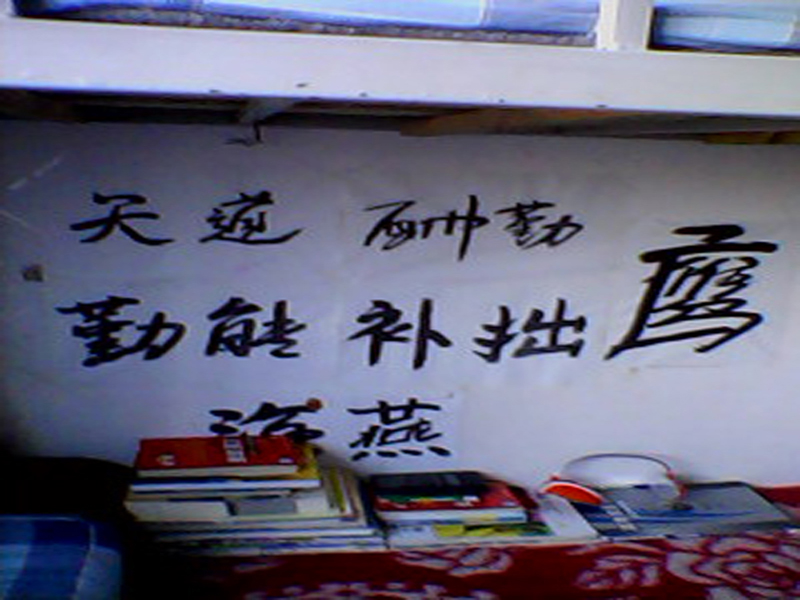 天道 酬勤
勤能补拙
鹰
海燕